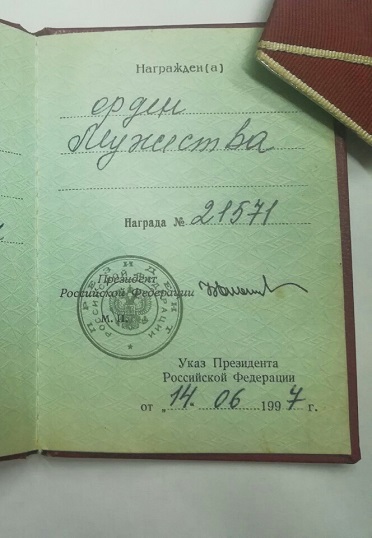 Награжден(а)
орден
Мужества
Награда № 21571
Президент
Российской Федерации
М. П.
ПРЕЗИДЕНТ
РОССИЙСКОЙ ФЕДЕРАЦИИ
Указ Президента
Российской Федерации
от „ 14. 06 1997 г.